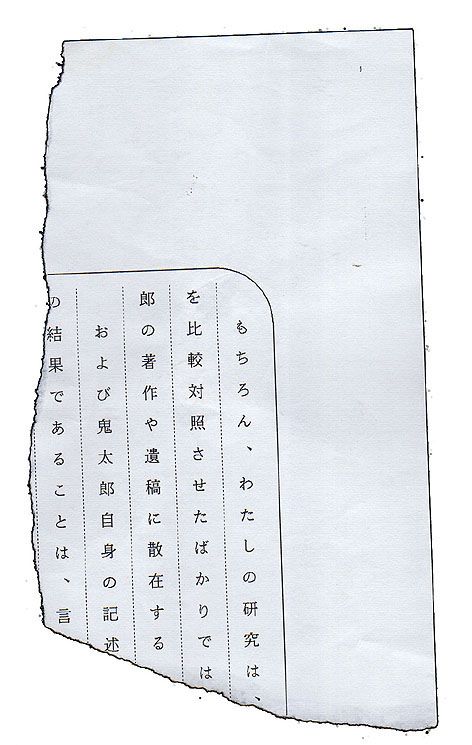 もちろん、わたしの研究は、
を比較対照させたばかりでは
郎の著作や遺稿に散在する
および鬼太郎自身の記述
の結果であることは、言